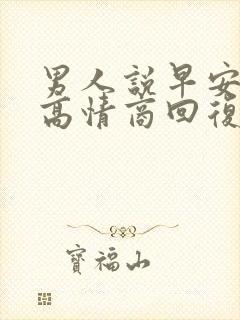 男人說早安
高情商回復
寶福山